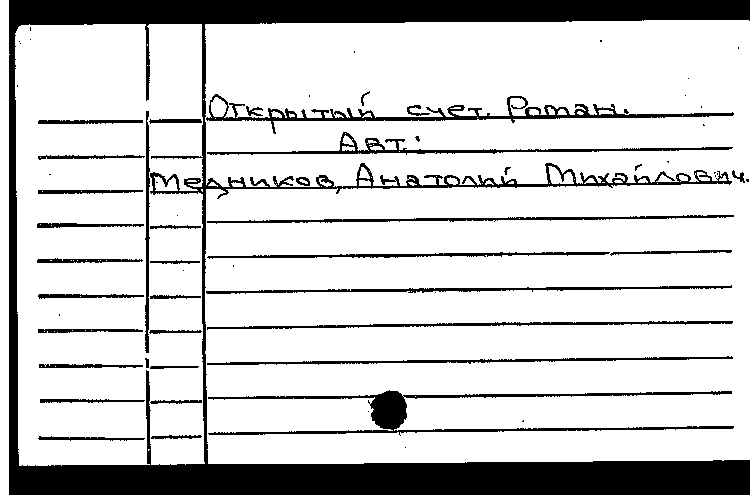 Открытый счет. Роман.
Авт.:
Медников, Анатолий Михайлович.